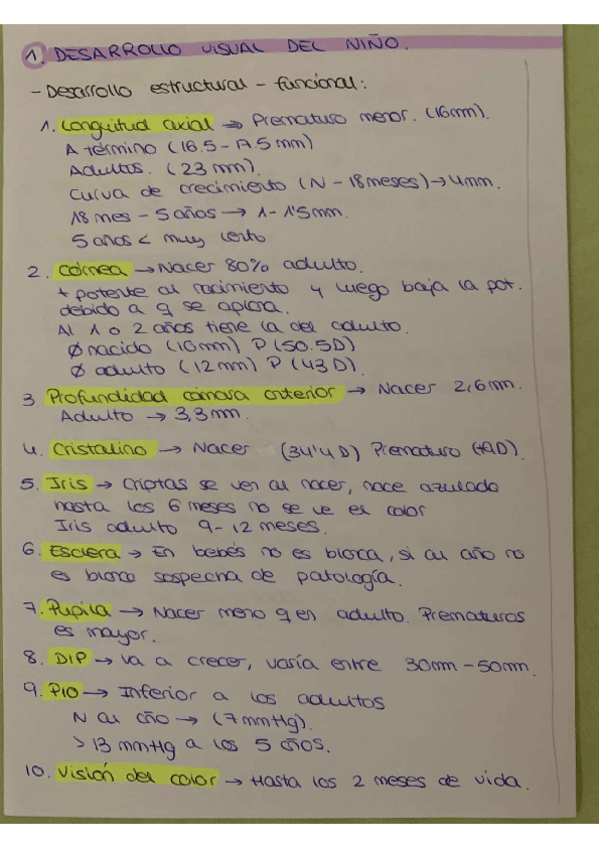 1. DESARROLLO VISUAL DEL NIÑO.
- Desarrollo estructural - funcional:
1. Longuitud axial → Prematuro menor. (16mm).
A término (16.5 - 17.5 mm)
Adultos. (23 mm).
Curva de crecimiento (N - 18 meses) → 4mm.
18 mes - 5 años → 1 - 1'5 mm.
5 años < muy lento
2. Córnea → Nacer 80% adulto.
+ potente al nacimiento y luego baja la pot.
debido a q se aplana.
Al 1 o 2 años tiene la del adulto.
Ø nacido (10mm) P (50.5D)
Ø adulto (12mm) P (43D).
3. Profundidad cámara anterior → Nacer 2,6mm.
Adulto → 3,3mm.
4. Cristalino → Nacer (34'4 D) Prematuro (+9D).
5. Iris → Criptas se ven al nacer, nace azulado
hasta los 6 meses no se ve el color
Iris adulto 9-12 meses.
6. Esclera → En bebés no es blanca, si al año no
es blanca sospecha de patología.
7. Pupila → Nacer meno q en adulto. Prematuros
es mayor.
8. DIP → va a crecer, varía entre 30mm - 50mm.
9. PIO → Inferior a los adultos
N al año → (7 mmHg).
> 13 mmHg a los 5 años.
10. Visión del color → Hasta los 2 meses de vida.